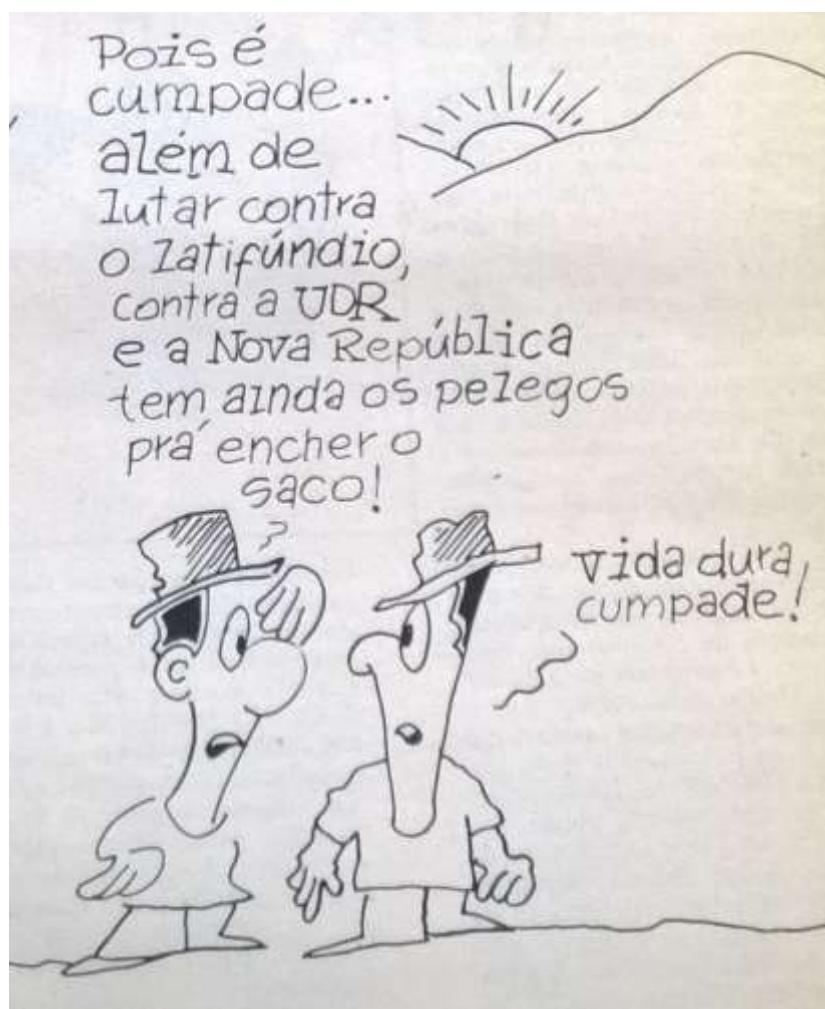 Pois é
cumpade...
além de
lutar contra
o latifúndio,
contra a UDR
e a Nova República
tem ainda os pelegos
prá encher o
saco!
?
vida dura,
cumpade!